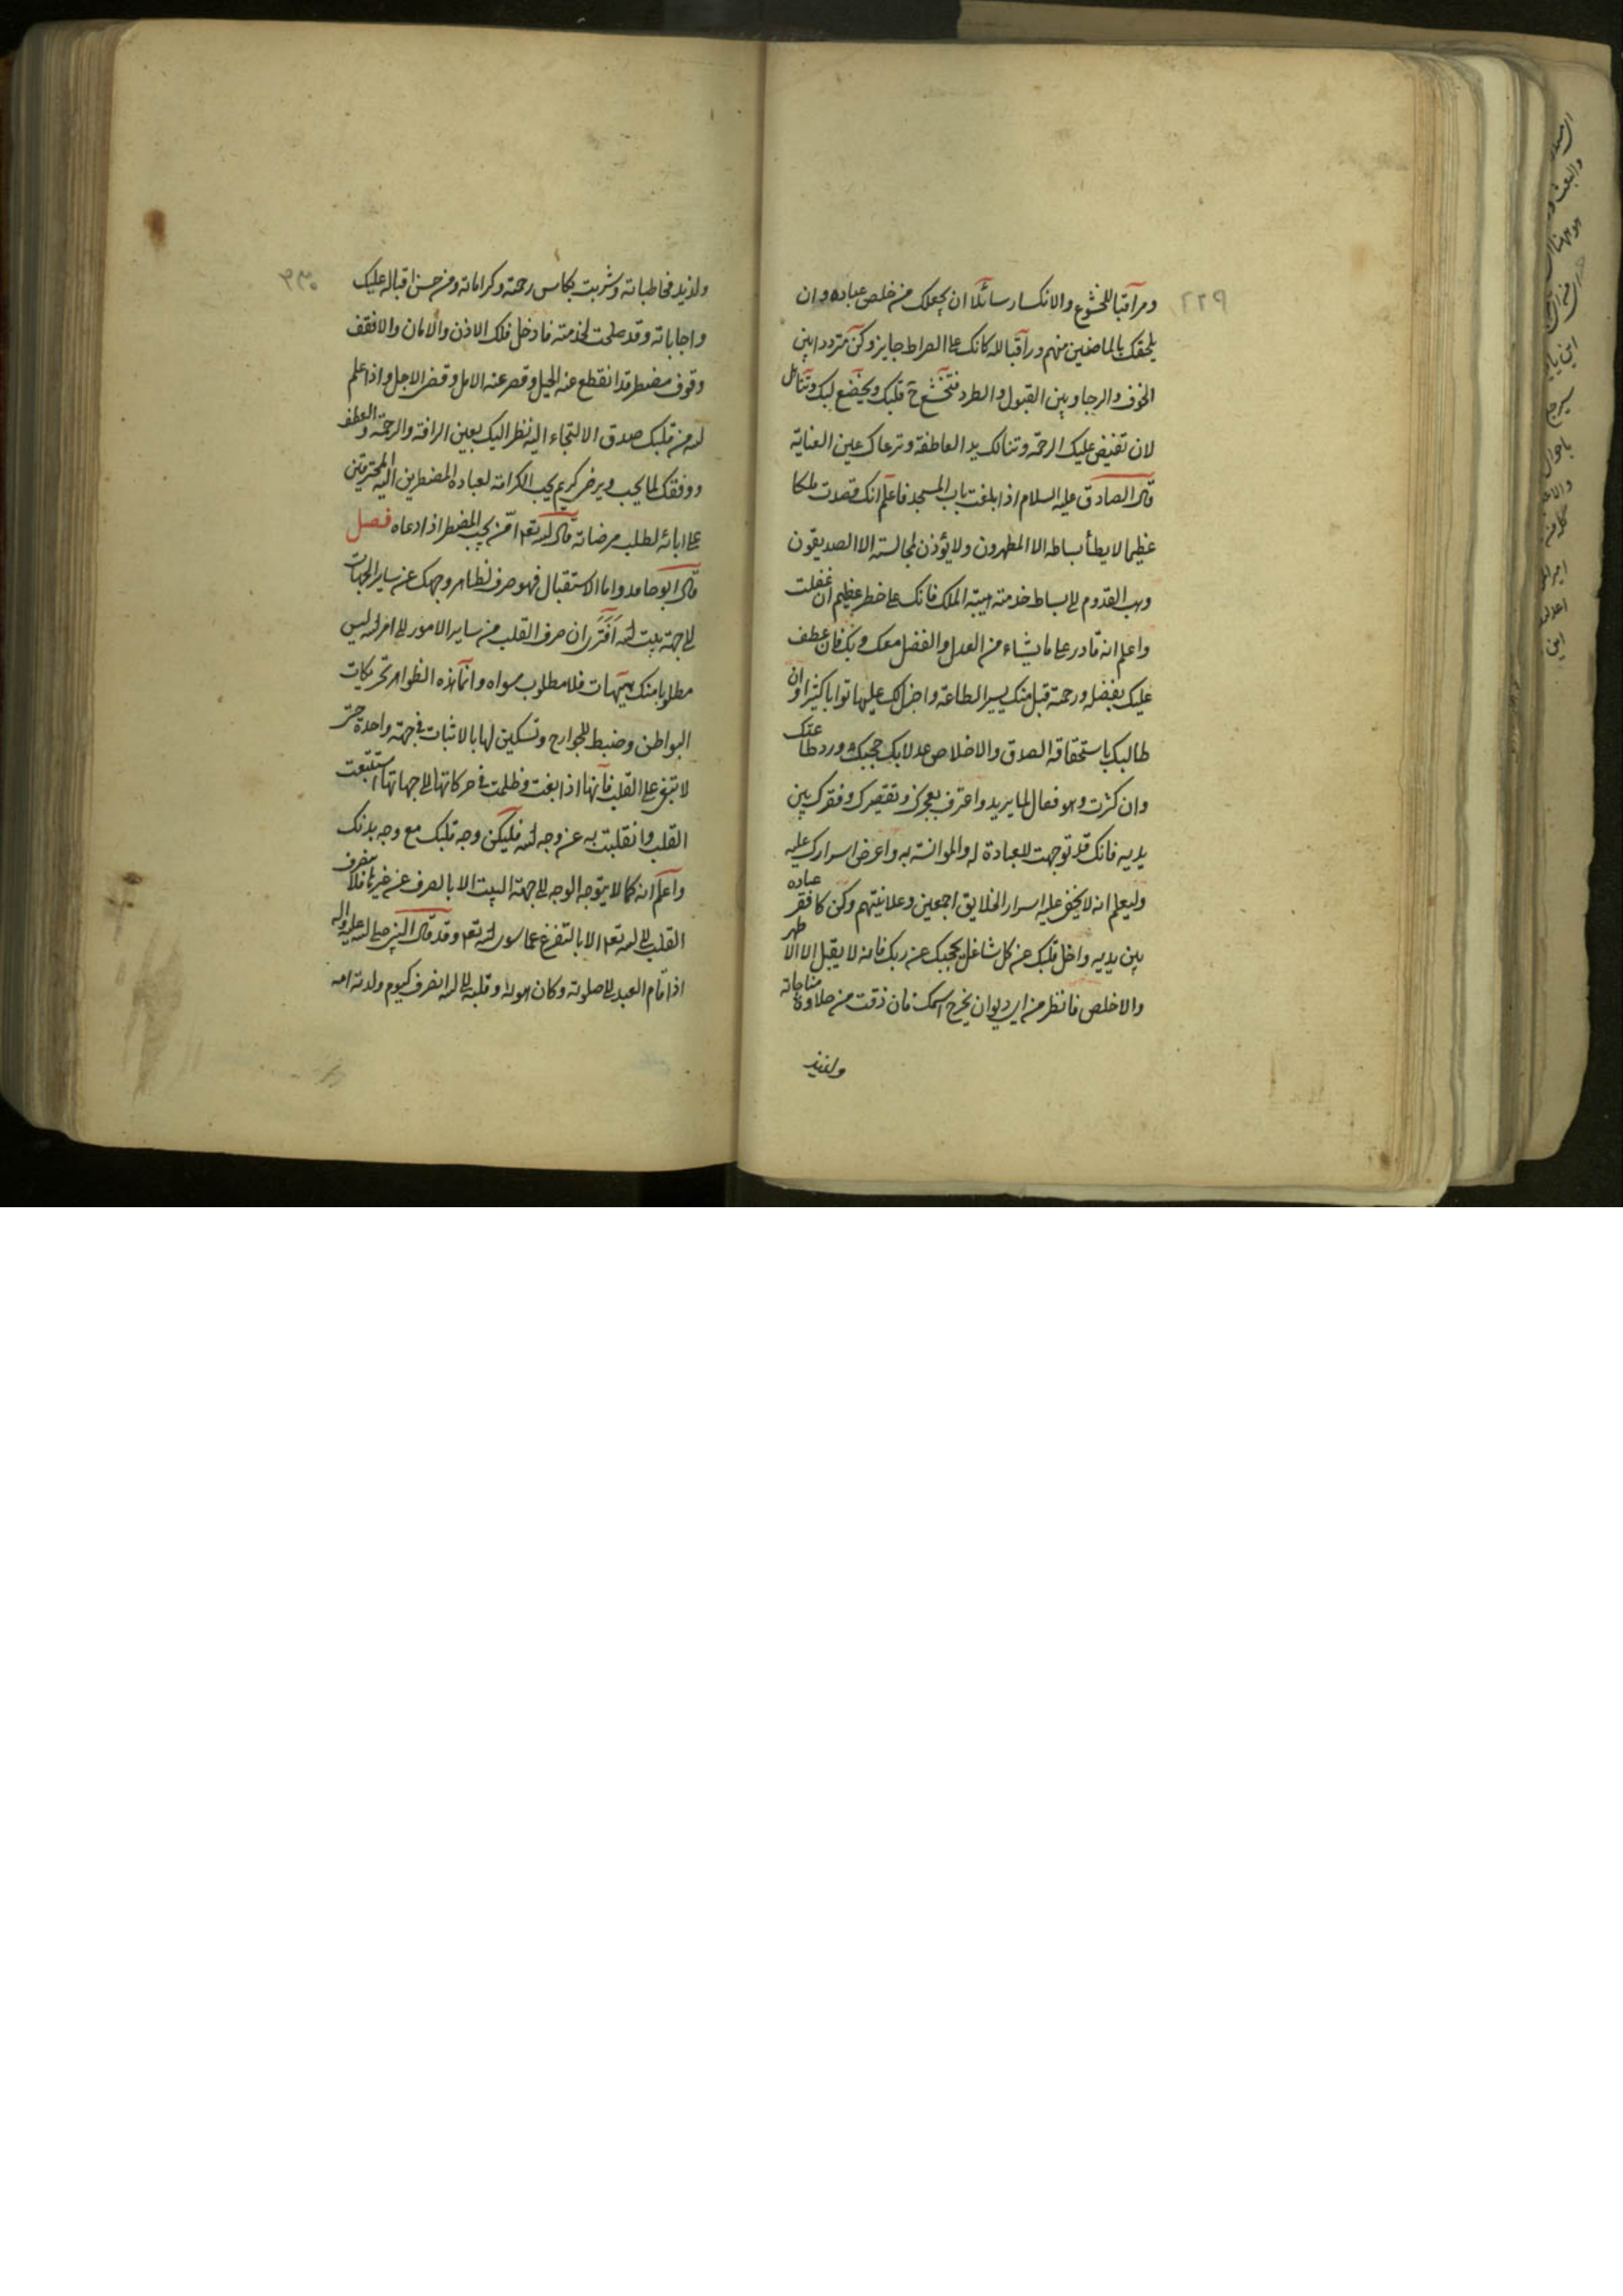 ٢٢٩
ومراقبا للخشوع والانكسار سائلا ان يجعلك من خلص عباده وان
يلحقك بالماضين منهم وراقبا لله كانك على الصراط جايز وكن مترددا بين
الخوف والرجا وبين القبول والطرد فتخشع ح قلبك ويخضع لبك وتتاهل
لان تفيض عليك الرحمة وتنالك يد العاطفة وترعاك عين العناية
قال الصادق عليه السلام اذا بلغت باب المسجد فاعلم انك قصدت ملكا
عظيما لا يطأ بساطه الا المطهرون ولا يؤذن لمجالسته الا الصديقون
وهب القدوم الى بساط خدمته هيبة الملك فانك على خطر عظيم ان غفلت
واعلم انه قادر على ما يشاء من العدل والفضل معك وبك فان عطف
عليك بفضله ورحمة قبل منك يسير الطاعة واجزل لك عليها ثوابا كثيرا وان
طالبك باستحقاقه الصدق والاخلاص عدلا بك حجبك ورد طاعتك
وان كثرت وهو فعال لما يريد واعترف بعجزك وتقصيرك وفقرك بين
يديه فانك قد توجهت للعبادة له والموانسة به واعرض اسرارك عليه
وليعلم انه لا يخفى عليه اسرار الخلايق اجمعين وعلانيتهم وكن كافقر عباده
بين يديه واخل قلبك عن كل شاغل يحجبك عن ربك فانه لا يقبل الا الاطهر
والاخلص فانظر من اي ديوان يخرج اسمك فان ذقت من حلاوة مناجاته
ولذيذ
٢٣٠
ولذيذ مخاطباته وشربت بكاس رحمته وكراماته ومن حسن اقباله عليك
واجاباته وقد صلحت لخدمته فادخل فلك الاذن والامان والا فقف
وقوف مضطر قد انقطع عنه الحيل وقصر عنه الامل وقضى الاجل واذا علم
الله من قلبك صدق الالتجاء اليه نظر اليك بعين الرافة والرحمة والعطف
ووفقك لما يحب ويرضى كريم يحب الكرامة لعباده المضطرين اليه المحترقين
على بابه لطلب مرضاته قال الله تعالى امن يجيب المضطر اذا دعاه فصل
قال ابو حامد واما الاستقبال فهو صرف لظاهر وجهك عن ساير الجهات
الى جهة بيت الله افترى ان صرف القلب من ساير الامور الى امر الله ليس
مطلوبا منك هيهات فلا مطلوب سواه وانما هذه الظواهر تحريكات
البواطن وضبط للجوارح وتسكين لها بالاثبات في جهة واحدة حتى
لا تبغى على القلب فانها اذا بغت وظلمت في حركاتها الى جهاتها استتبعت
القلب وانقلبت به عن وجه الله فليكن وجه قلبك مع وجه بدنك
واعلم انه كما لا يتوجه الوجه الى جهة البيت الا بالصرف عن غيرها فلا ينصرف
القلب الى الله تعالى الا بالتفرغ عما سوى الله تعالى وقد قال النبي صلى الله عليه واله
اذا قام العبد الى صلوته وكان هواه وقلبه الى الله انصرف كيوم ولدته امه